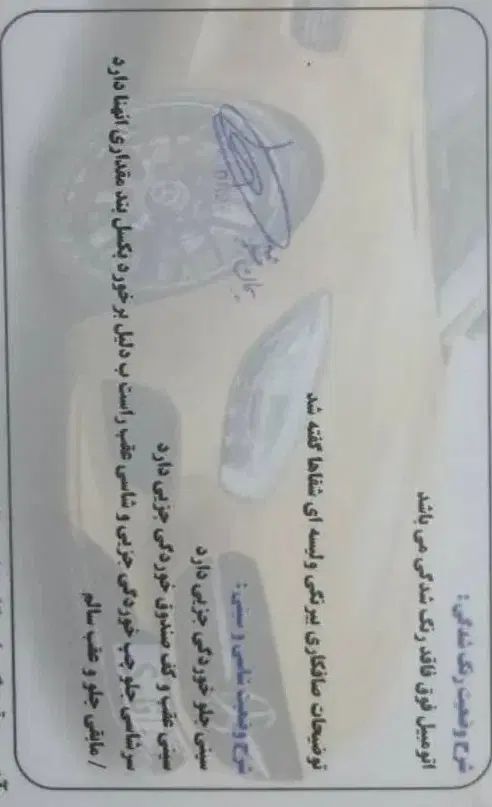 شرح وضعیت رنگ شدگی :
اتومبیل فوق فاقد رنگ شدگی می باشد
توضیحات صافکاری بیرنگی ولیسه ای شفاها گفته شد
شرح وضعیت شاسی و سینی :
سینی جلو خوردگی جزیی دارد
سینی عقب و کف صندوق خوردگی جزیی دارد
سرشاسی جلو چپ خوردگی جزیی و شاسی عقب راست ب دلیل برخورد بکسل بند مقداری انهنا دارد
/ مابقی جلو و عقب سالم